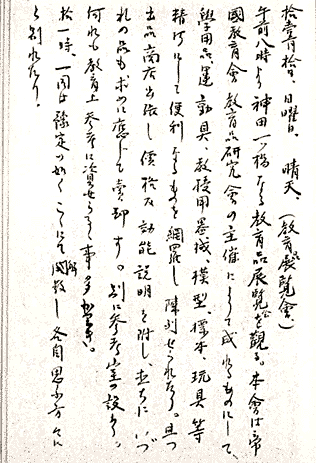 拾壹月拾日、日曜日、晴天、(教育展覧會)
午前八時より神田一ツ橋なる教育品展覧會を觀る。本會は帝
國教育會教育品研究會の主催によりて成れるものにして、
學用品、運動具、教授用器械、模型、標本、玩具等
精巧にして便利なるものを網羅し陳列せられたり。且つ
出品商店出張し價格及効能説明を附し、直ちにいづ
れの品も求めに應じて賣却す。別に参考室の設あり。
何れも教育上参考に資せらるゝ事多かりき。
拾一時、一同は豫定の如くこゝにて解散し各自思ふ方々に
と別れたり。